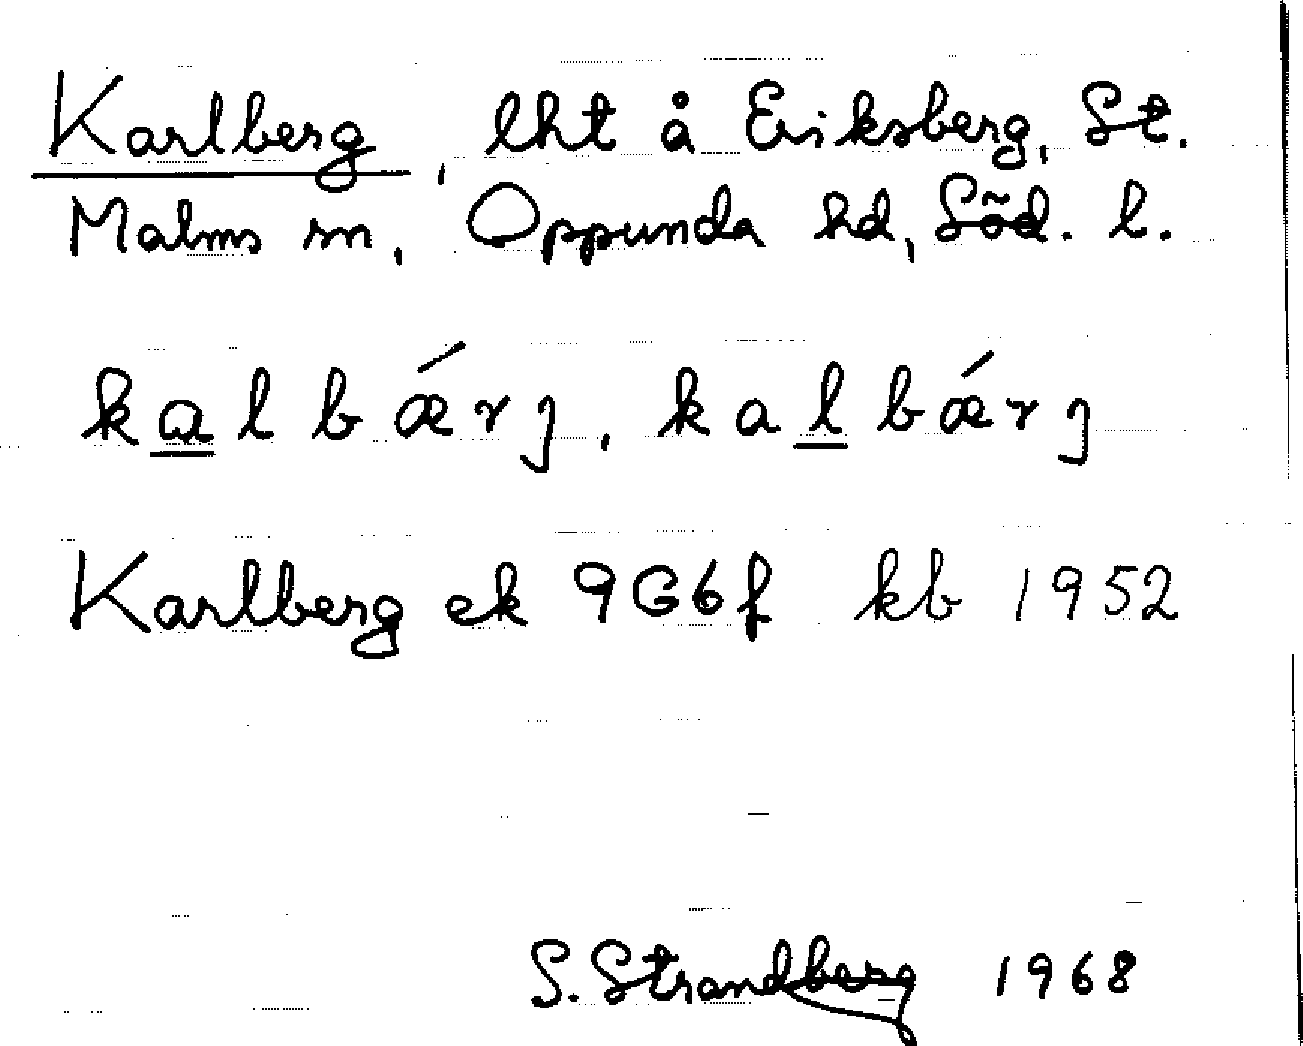 Karlberg, lht å Eriksberg, St.
Malms sn, Oppunda hd, Söd. l.
kalbǽrȷ, kalbǽrȷ
Karlberg ek 9G6f kb 1952
S. Strandberg 1968